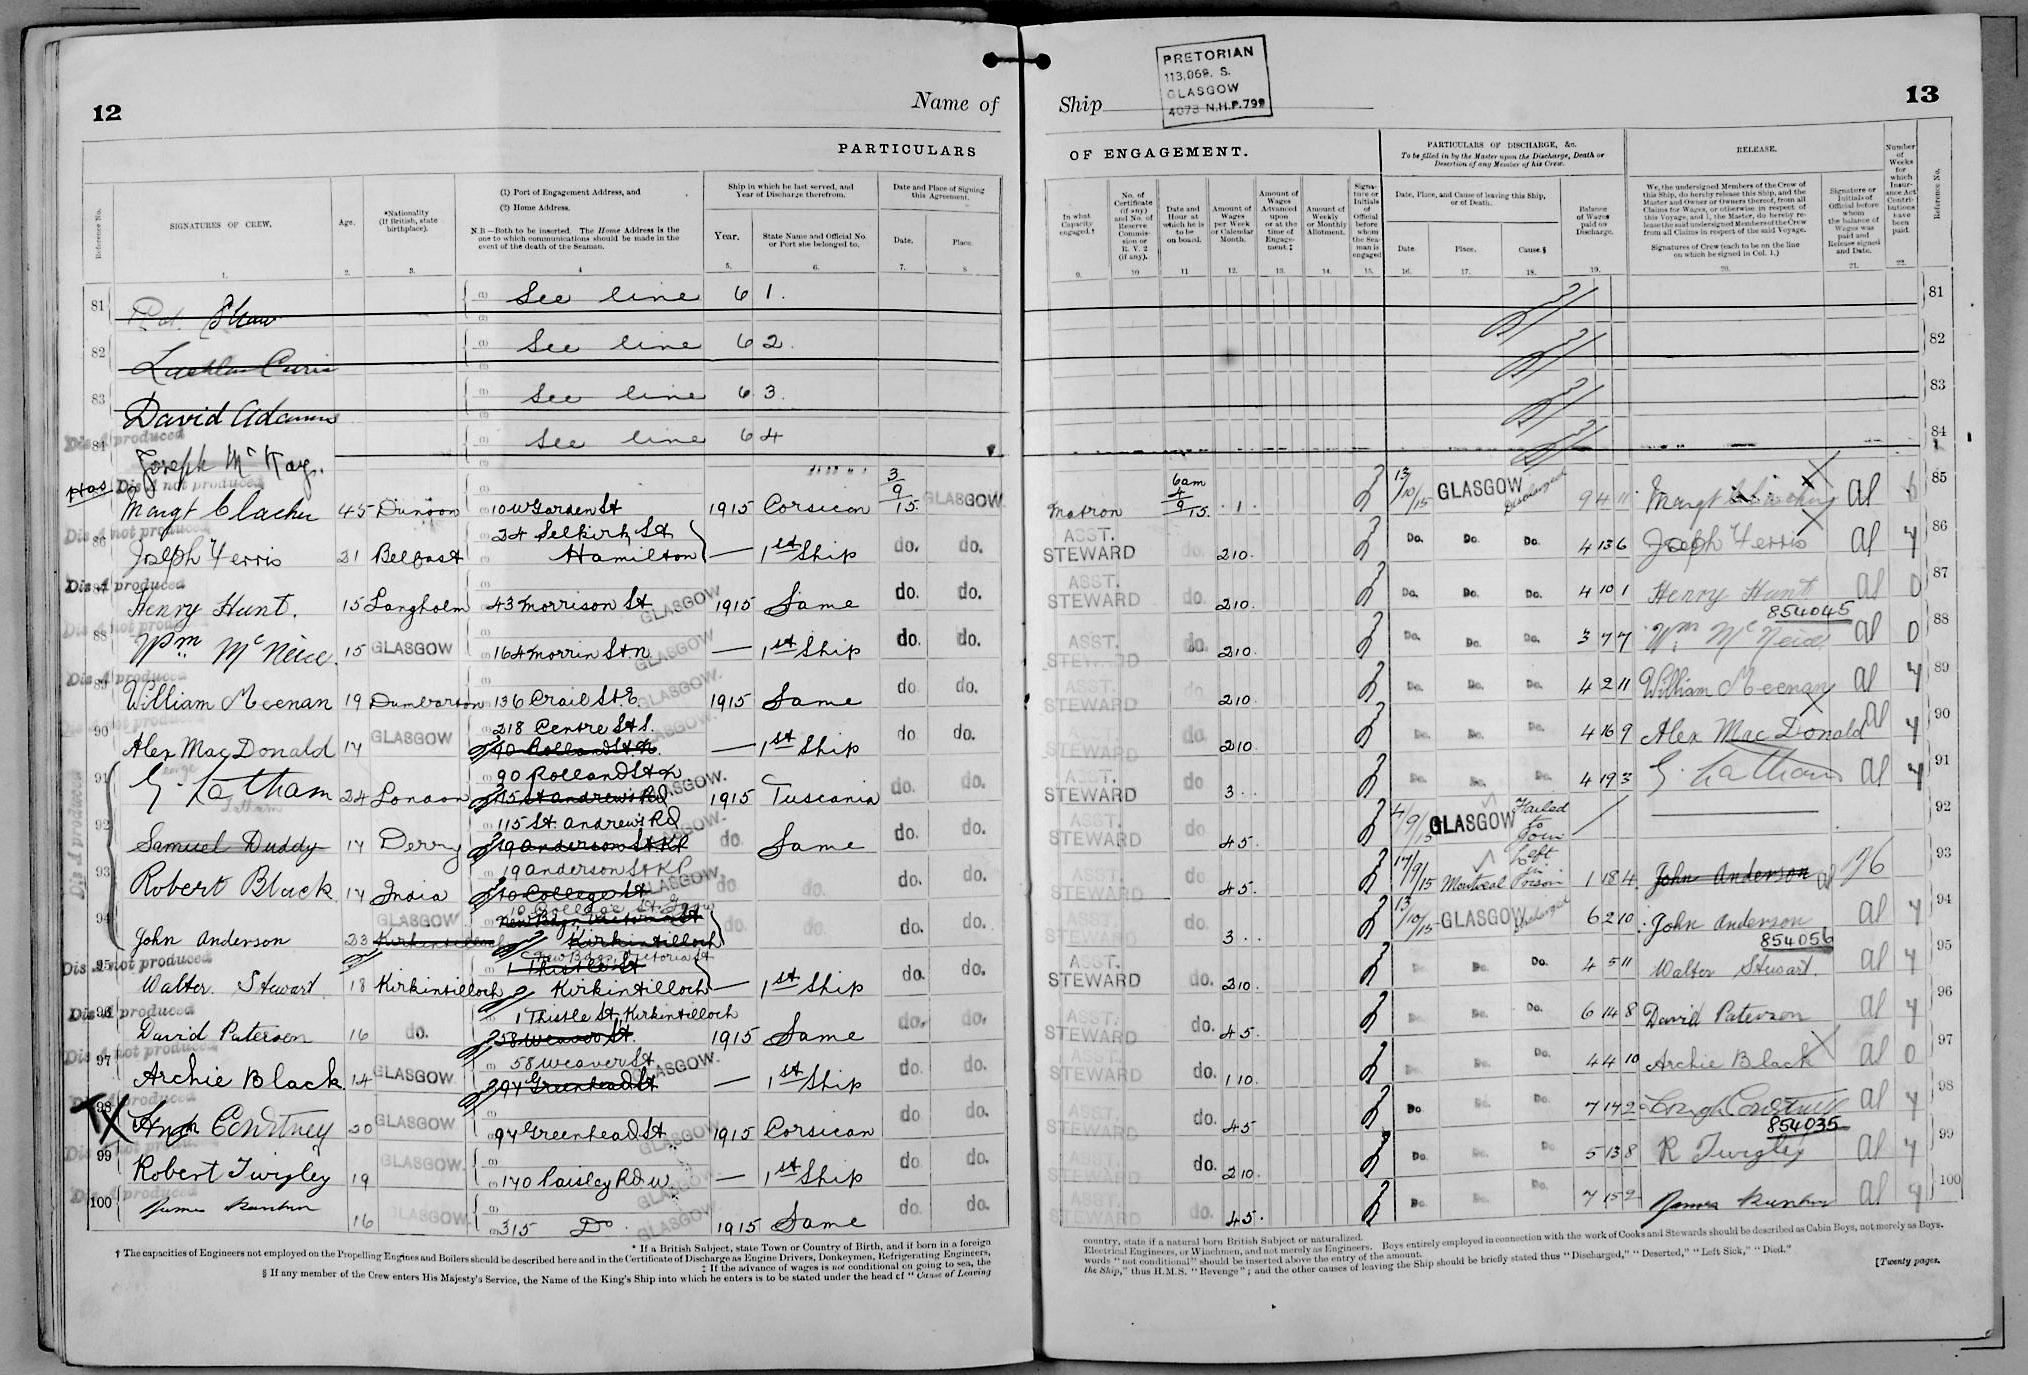 12
Name of
Ship
PRETORIAN
113,069. S.
GLASGOW
4073 N.H.P. 799
13
PARTICULARS
OF ENGAGEMENT.
PARTICULARS OF DISCHARGE, &c.
To be filled in by the Master upon the Discharge, Death or Desertion of any Member of his Crew.
RELEASE.
Reference No.
SIGNATURES OF CREW.
Age.
*Nationality (If British, state birthplace).
(1) Port of Engagement Address, and
(2) Home Address.
N.B—Both to be inserted. The Home Address is the one to which communications should be made in the event of the death of the Seaman.
Ship in which he last served, and Year of Discharge therefrom.
Year.
State Name and Official No. or Port she belonged to.
Date and Place of Signing this Agreement.
Date.
Place.
In what Capacity engaged.†
No. of Certificate (if any) and No. of Reserve Commission or R. V. 2 (if any).
Date and Hour at which he is to be on board.
Amount of Wages per Week or Calendar Month.
Amount of Wages Advanced upon or at the time of Engagement.‡
Amount of Weekly or Monthly Allotment.
Signature or Initials of Official before whom the Seaman is engaged
Date, Place, and Cause of leaving this Ship, or of Death.
Date.
Place.
Cause.§
Balance of Wages paid on Discharge.
We, the undersigned Members of the Crew of this Ship, do hereby release this Ship, and the Master and Owner or Owners thereof, from all Claims for Wages, or otherwise in respect of this Voyage, and I, the Master, do hereby release the said undersigned Members of the Crew from all Claims in respect of the said Voyage.
Signatures of Crew (each to be on the line on which he signed in Col. 1.)
Signature or Initials of Official before whom the balance of Wages was paid and Release signed and Date.
Number of Weeks for which Insurance Act Contributions have been paid.
Reference No.
1. 2. 3. 4 5. 6. 7. 8 9. 10 11 12. 13. 14. 15. 16. 17. 18. 19. 20. 21. 22.
81 Shaw See line 61. 81
82 See line 62. 82
83 David Adams See line 63. 83
Dis A produced
84 Joseph McKay. See line 64 84
Dis A not produced
Margt Clacher 45 Dunoon 10 W Garden St 1915 Corsican 3/9/15. GLASGOW Matron 6am 4/9/15. 1 13/10/15 GLASGOW Discharged 9 4 11 Margt al 85
Dis A not produced
86 Joseph Ferris 21 Belfast 24 Selkirk St Hamilton — 1st Ship do. do. ASST. STEWARD do. 2 10. Do. Do. Do. 4 13 6 Joseph Ferris al 4 86
Dis A produced
87 Henry Hunt. 15 Langholm 43 Morrison St GLASGOW 1915 Same do. do. ASST. STEWARD do. 2 10. Do. Do. Do. 4 10 1 Henry Hunt al 0 87
854045
Dis A not produced
88 Wm McNeice. 15 GLASGOW 164 Morrin St N GLASGOW — 1st Ship do. do. ASST. STEWARD do. 2 10. Do. Do. Do. 3 7 7 Wm McNeice al 0 88
Dis A produced
89 William Meenan 19 Dumbarton 136 Crail St. E. GLASGOW. 1915 Same do do. ASST. STEWARD do 2 10. Do. Do. Do. 4 2 11 William Meenan al 4 89
Dis A not produced
90 Alex MacDonald 17 GLASGOW 218 Centre St S. 90 Rolland St N. GLASGOW. — 1st Ship do do. ASST. STEWARD do. 2 10. Do. Do. Do. 4 16 9 Alex MacDonald al 4 90
Dis A produced
91 G. Latham 24 London 90 Rolland St N 115 St Andrews Rd GLASGOW. 1915 Tuscania do. do. ASST. STEWARD do 3 . . Do. Do. Do. 4 19 3 G. Latham al 4 91
92 Samuel Duddy 17 Derry 115 St. Andrews Rd 19 Anderson St KP GLASGOW. do. Same do. do. ASST. STEWARD do 4 5. 4/9/15 GLASGOW Failed to Join 92
93 Robert Black 17 India 19 Anderson St KP 10 College St GLASGOW. do do. do. do. ASST. STEWARD do 4 5. 17/9/15 Montreal Left in Prison 1 18 4 John Anderson al 93
94 John Anderson 23 GLASGOW Kirkintilloch 10 College St Gow New Bdgs, Victoria St Kirkintilloch do. do. do. do. ASST. STEWARD do 3 . . 13/10/15 GLASGOW Discharged 6 2 10 John Anderson al 4 94
854056
Dis A not produced
95 Walter Stewart 18 Kirkintilloch New Bdgs, Victoria St 1 Thistle St Kirkintilloch — 1st Ship do. do. ASST. STEWARD do. 2 10. Do. Do. Do. 4 5 11 Walter Stewart. al 4 95
Dis A produced
96 David Paterson 16 do. 1 Thistle St, Kirkintilloch 58 Weaver St. 1915 Same do. do. ASST. STEWARD do. 4 5. Do. Do. Do. 6 14 8 David Paterson al 4 96
Dis A not produced
97 Archie Black. 14 GLASGOW 58 Weaver St 94 Greenhead St GLASGOW. — 1st Ship do. do. ASST. STEWARD do. 1 10. Do. Do. Do. 4 4 10 Archie Black al 0 97
Dis A produced
98 Hugh Courtney 20 GLASGOW 94 Greenhead St GLASGOW 1915 Corsican do do. ASST. STEWARD do. 4 5 Do. Do. Do. 7 14 2 Hugh Courtney al 4 98
854035
Dis A not produced
99 Robert Twigley 19 GLASGOW. 140 Paisley Rd W GLASGOW — 1st Ship do do. ASST. STEWARD do. 2 10. Do. Do. Do. 5 13 8 R Twigley al 4 99
Dis A produced
100 James 16 GLASGOW. 315 Do. GLASGOW. 1915 Same do do. ASST. STEWARD do. 4 5. Do. Do. Do. 7 15 2 James al 4 100
* If a British Subject, state Town or Country of Birth, and if born in a foreign
† The capacities of Engineers not employed on the Propelling Engines and Boilers should be described here and in the Certificate of Discharge as Engine Drivers, Donkeymen, Refrigerating Engineers,
‡ If the advance of wages is not conditional on going to sea, the
§ If any member of the Crew enters His Majesty's Service, the Name of the King's Ship into which he enters is to be stated under the head of "Cause of Leaving
country, state if a natural born British Subject or naturalized.
Electrical Engineers, or Winchmen, and not merely as Engineers. Boys entirely employed in connection with the work of Cooks and Stewards should be described as Cabin Boys, not merely as Boys.
words "not conditional" should be inserted above the entry of the amount.
the Ship," thus H.M.S. "Revenge"; and the other causes of leaving the Ship should be briefly stated thus "Discharged," "Deserted," "Left Sick," "Died."
[Twenty pages.